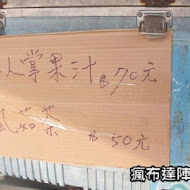 人掌果汁$70元
風茹茶 $50元
瘋布達陣